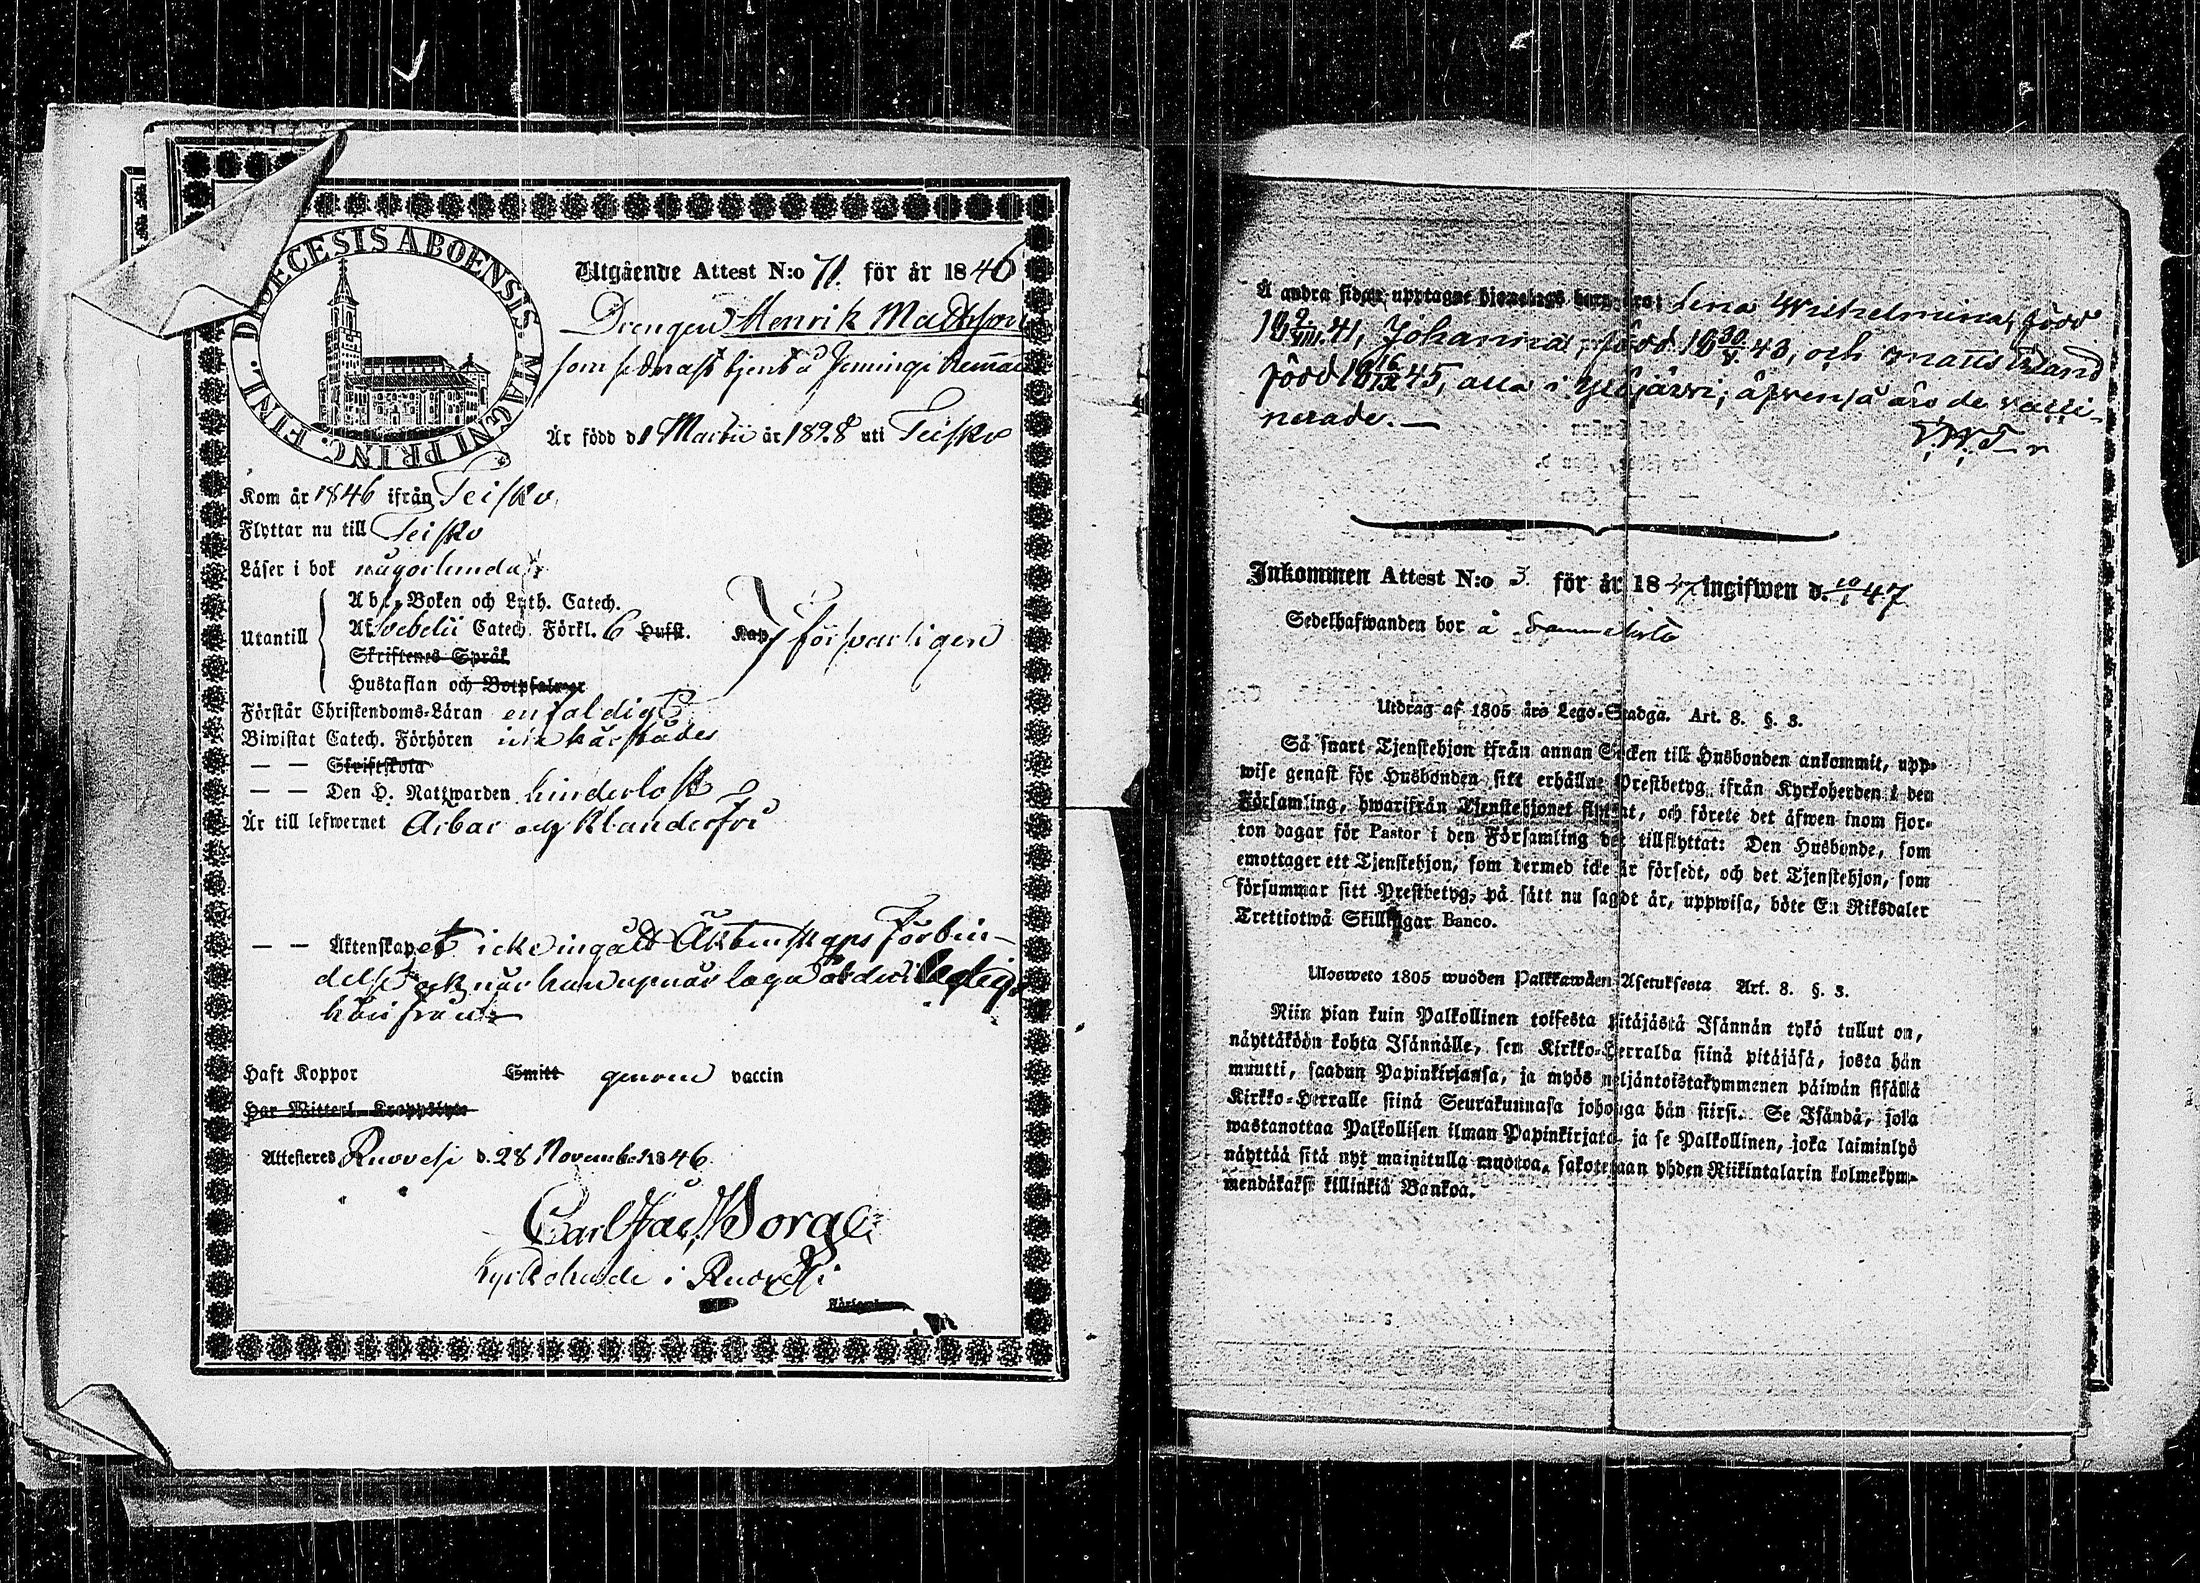 DIOECESIS ABOENSIS. MAGNI PRINC. FINL.
Utgående Attest N:o 71. för år 1846
Drengen Henrik Mathsson
som sednast tjent å Jenninge Remai
Är född d 1 Martii år 1828 uti Teisko
Kom år 1846 ifrån Teisko
Flyttar nu till Teisko
Läser i bok någorlunda
Utantill
Abc-Boken och Luth. Catech.
Af Svebelii Catech. Förkl. 6 Hufst. Kap. försvarligen
Skriftenes Språk
Hustaflan och Botpsalmer
Förstår Christendoms-Läran enfaldigt
Biwistat Catech. Förhören
— — Skriftskola
— — Den H. Nattwarden hinderlöst
Är till lefwernet Ärbar och Klanderfri
— — Äktenskapet icke ingått Äktenskaps Förbin-
delse och når han upnår laga ålder ledig
härifrån
Haft Koppor Smitt genom vaccin
Har Witterl. Kroppslyte
Attesteres Ruovesi d. 28 November 1846
Carl Jac. Borg
Kyrkoherde i Ruovesi
Å andra sidan upptagne hjonelags barn äro: Lena Wilhelmina, född
18 9/VIII 41, Johanna, född 18 30/V 43, och Matts
född 18 16/IX 45, alla i Ylöjärvi; äfvenså äro de vacci-
nerade. —
Inkommen Attest N:o 3. för år 1847 ingifwen d. 10/1 47
Sedelhafwanden bor å
Utdrag af 1805 års Lego-Stadga. Art. 8. §. 3.
Så snart Tjenstehjon ifrån annan Socken till Husbonden ankommit, upp-
wise genast för Husbonden sitt erhållne Prestbetyg ifrån Kyrkoherden i den
Församling, hwarifrån Tjenstehjonet flyttat, och förete det äfwen inom fjor-
ton dagar för Pastor i den Församling det tillflyttat: Den Husbonde, som
emottager ett Tjenstehjon, som dermed icke är försedt, och det Tjenstehjon, som
försummar sitt Prestbetyg, på sätt nu sagdt är, uppwisa, böte En Riksdaler
Trettiotwå Skillingar Banco.
Ulosweto 1805 wuoden Palkkawäen Asetuksesta Art. 8. §. 3.
Niin pian kuin Palkollinen toisesta pitäjästä Isännän tykö tullut on,
näyttäköön kohta Isännälle, sen Kirkko-Herralda siinä pitäjäsä, josta hän
muutti, saadun Papinkirjansa, ja myös neljäntoistakymmenen päiwän sisällä
Kirkko-Herralle siinä Seurakunnasa johonga hän siirsi. Se Isändä, joka
wastanottaa Palkollisen ilman Papinkirjata, ja se Palkollinen, joka laiminlyö
näyttää sitä nyt mainitulla muotoa, sakotetaan yhden Riikintalarin kolmekym-
mendäkaksi killinkiä Bankoa.